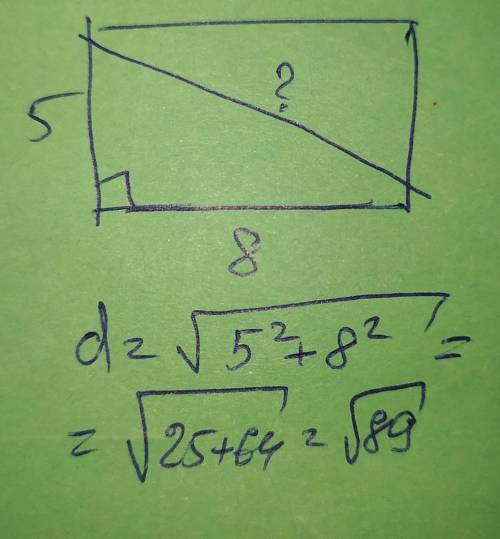 ?
5
8
d = √(5² + 8²) =
= √(25+64) = √89